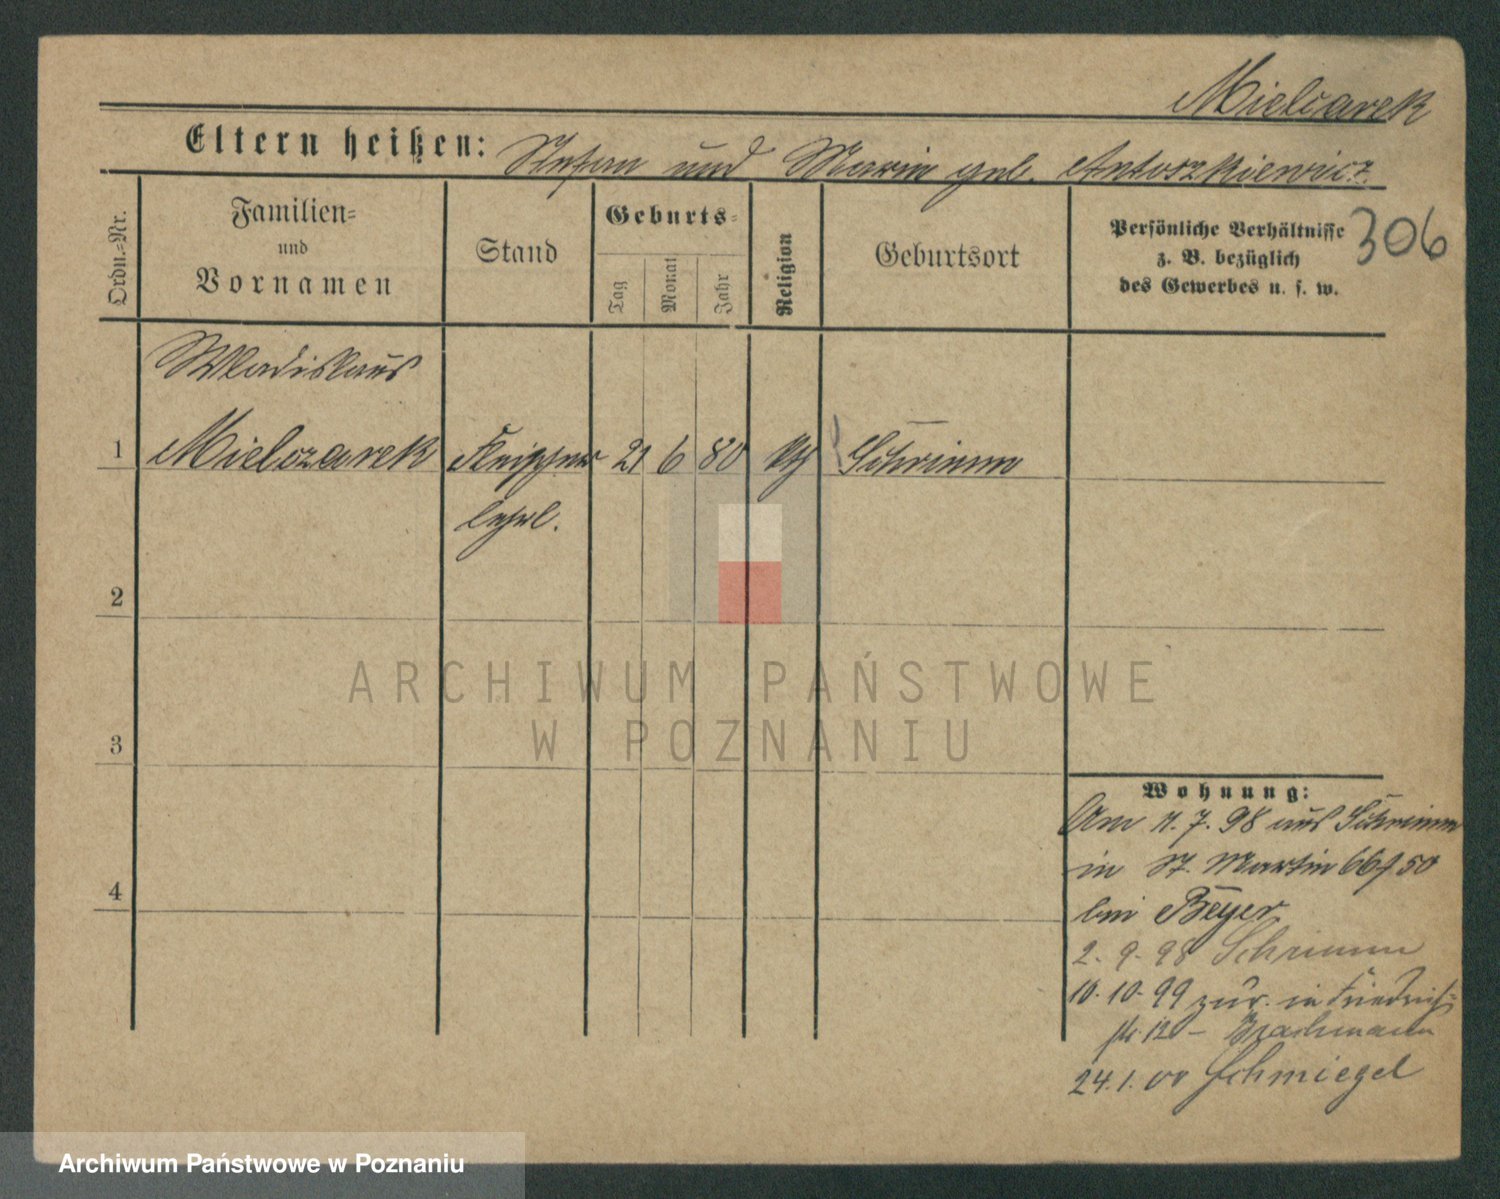 Mielcarek
Eltern heißen: Stefan und Marie geb. Antoszkiewicz
306
Ordn.-Nr.
Familien-
und
Vornamen
Stand
Geburts-
Tag
Monat
Jahr
Religion
Geburtsort
Persönliche Verhältnisse
z. B. bezüglich
des Gewerbes u. s. w.
Wladislaus
1 Mielczarek 21 6 80 kth Schrimm
lehrl.
2
3
4
ARCHIWUM PAŃSTWOWE
W POZNANIU
Wohnung:
Am 4. 7. 98 aus Schrimm
in St. Martin 66/ 50
bei Beyer
2. 9. 98 Schrimm
10. 10. 99 zur. in Friedrich-
str. 12 –
24. 1. 00 Schmiegel
Archiwum Państwowe w Poznaniu